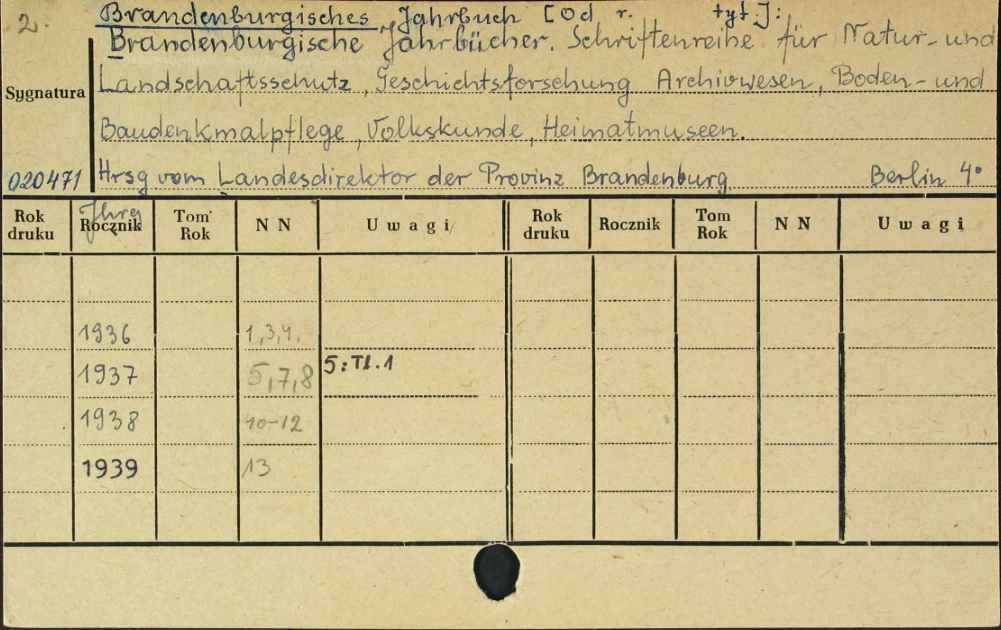 2.
Brandenburgisches Jahrbuch [Od r. tyt.]:
Brandenburgische Jahrbücher. Schriftenreihe für Natur- und
Landschaftsschutz, Geschichtsforschung Archivwesen, Boden- und
Baudenkmalpflege, Volkskunde, Heimatmuseen.
Sygnatura
020471 Hrsg vom Landesdirektor der Provinz Brandenburg. Berlin 4°
Jhrg
Rok druku Rocznik Tom Rok N N Uwagi Rok druku Rocznik Tom Rok N N Uwagi
1936 1,3,4.
1937 5,7,8 5:Tl.1
1938 10-12
1939 13